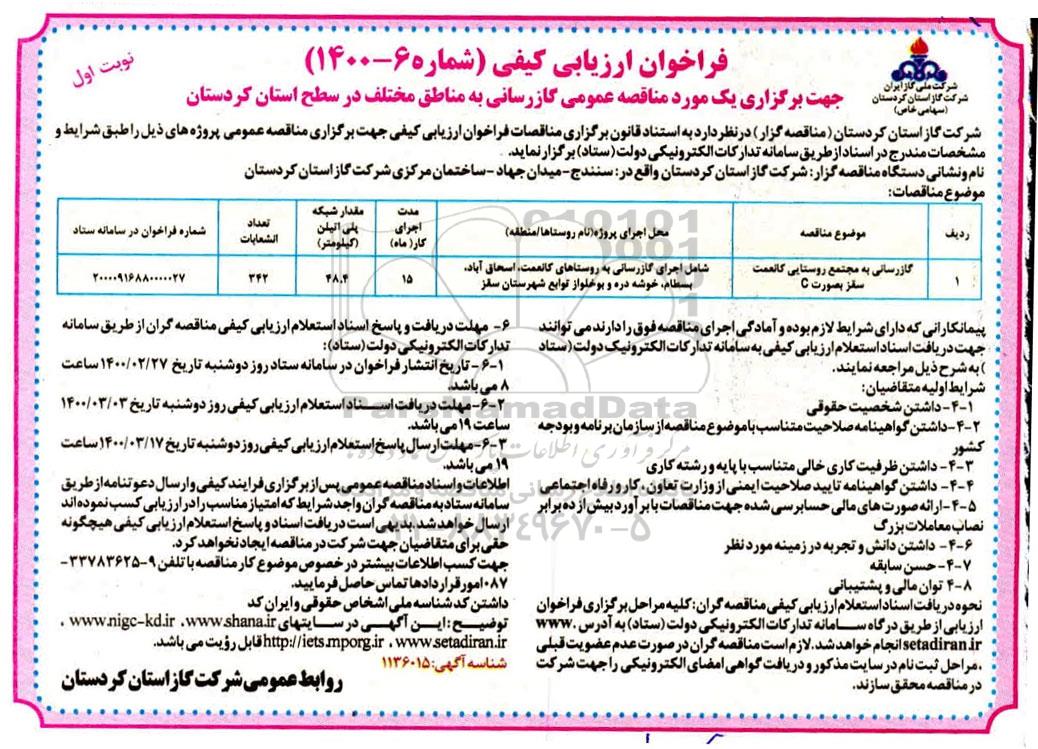 نوبت اول
فراخوان ارزیابی کیفی (شماره ۶-۱۴۰۰)
جهت برگزاری یک مورد مناقصه عمومی گازرسانی به مناطق مختلف در سطح استان کردستان
شرکت ملی گاز ایران
شرکت گاز استان کردستان
(سهامی خاص)
شرکت گاز استان کردستان (مناقصه گزار) در نظر دارد به استناد قانون برگزاری مناقصات فراخوان ارزیابی کیفی جهت برگزاری مناقصه عمومی پروژه های ذیل را طبق شرایط و
مشخصات مندرج در اسناد از طریق سامانه تدارکات الکترونیکی دولت (ستاد) برگزار نماید.
نام و نشانی دستگاه مناقصه گزار: شرکت گاز استان کردستان واقع در: سنندج-میدان جهاد-ساختمان مرکزی شرکت گاز استان کردستان
موضوع مناقصات:
ردیف | موضوع مناقصه | محل اجرای پروژه(نام روستاها/منطقه) | مدت اجرای کار( ماه) | مقدار شبکه پلی اتیلن (کیلومتر) | تعداد انشعابات | شماره فراخوان در سامانه ستاد
۱ | گازرسانی به مجتمع روستایی کانعمت سقز بصورت C | شامل اجرای گازرسانی به روستاهای کانعمت، اسحاق آباد، بسطام، خوشه دره و بوخلواز توابع شهرستان سقز | ۱۵ | ۴۸.۴ | ۳۴۲ | ۲۰۰۰۰۹۱۶۸۸۰۰۰۰۲۷
پیمانکارانی که دارای شرایط لازم بوده و آمادگی اجرای مناقصه فوق را دارند می توانند
جهت دریافت اسناد استعلام ارزیابی کیفی به سامانه تدارکات الکترونیک دولت (ستاد
) به شرح ذیل مراجعه نمایند.
شرایط اولیه متقاضیان:
۴-۱-داشتن شخصیت حقوقی
۴-۲-داشتن گواهینامه صلاحیت متناسب با موضوع مناقصه از سازمان برنامه و بودجه
کشور
۴-۳- داشتن ظرفیت کاری خالی متناسب با پایه و رشته کاری
۴-۴- داشتن گواهینامه تایید صلاحیت ایمنی از وزارت تعاون، کار و رفاه اجتماعی
۴-۵-ارائه صورت های مالی حسابرسی شده جهت مناقصات با برآورد بیش از ده برابر
نصاب معاملات بزرگ
۴-۶- داشتن دانش و تجربه در زمینه مورد نظر
۴-۷- حسن سابقه
۴-۸ توان مالی و پشتیبانی
نحوه دریافت اسناد استعلام ارزیابی کیفی مناقصه گران: کلیه مراحل برگزاری فراخوان
ارزیابی از طریق درگاه سامانه تدارکات الکترونیکی دولت (ستاد) به آدرس .www
setadiran.ir انجام خواهد شد. لازم است مناقصه گران در صورت عدم عضویت قبلی
،مراحل ثبت نام در سایت مذکور و دریافت گواهی امضای الکترونیکی را جهت شرکت
در مناقصه محقق سازند.
۶- مهلت دریافت و پاسخ اسناد استعلام ارزیابی کیفی مناقصه گران از طریق سامانه
تدارکات الکترونیکی دولت (ستاد):
۶-۱-تاریخ انتشار فراخوان در سامانه ستاد روز دوشنبه تاریخ ۱۴۰۰/۰۲/۲۷ ساعت
۸ می باشد.
۶-۲-مهلت دریافت اسناد استعلام ارزیابی کیفی روز دوشنبه تاریخ ۱۴۰۰/۰۳/۰۳
ساعت ۱۹ می باشد.
۶-۳-مهلت ارسال پاسخ استعلام ارزیابی کیفی روز دوشنبه تاریخ ۱۴۰۰/۰۳/۱۷ ساعت
۱۹ می باشد.
اطلاعات و اسناد مناقصه عمومی پس از برگزاری فرایند کیفی و ارسال دعوتنامه از طریق
سامانه ستاد به مناقصه گران واجد شرایط که امتیاز مناسب را در ارزیابی کسب نموده اند
ارسال خواهد شد. بدیهی است دریافت اسناد و پاسخ استعلام ارزیابی کیفی هیچگونه
حقی برای متقاضیان جهت شرکت در مناقصه ایجاد نخواهد کرد.
جهت کسب اطلاعات بیشتر در خصوص موضوع کار مناقصه با تلفن ۹-۳۳۷۸۳۶۲۵-
۰۸۷ امور قراردادها تماس حاصل فرمایید.
داشتن کد شناسه ملی اشخاص حقوقی و ایران کد
توضیح: این آگهی در سایتهای www.shana.ir، www.nigc-kd.ir ،
www.setadiran.ir ، http://iets.mporg.ir قابل رؤیت می باشد.
شناسه آگهی: ۱۱۳۶۰۱۵
روابط عمومی شرکت گاز استان کردستان
ParsNamadData